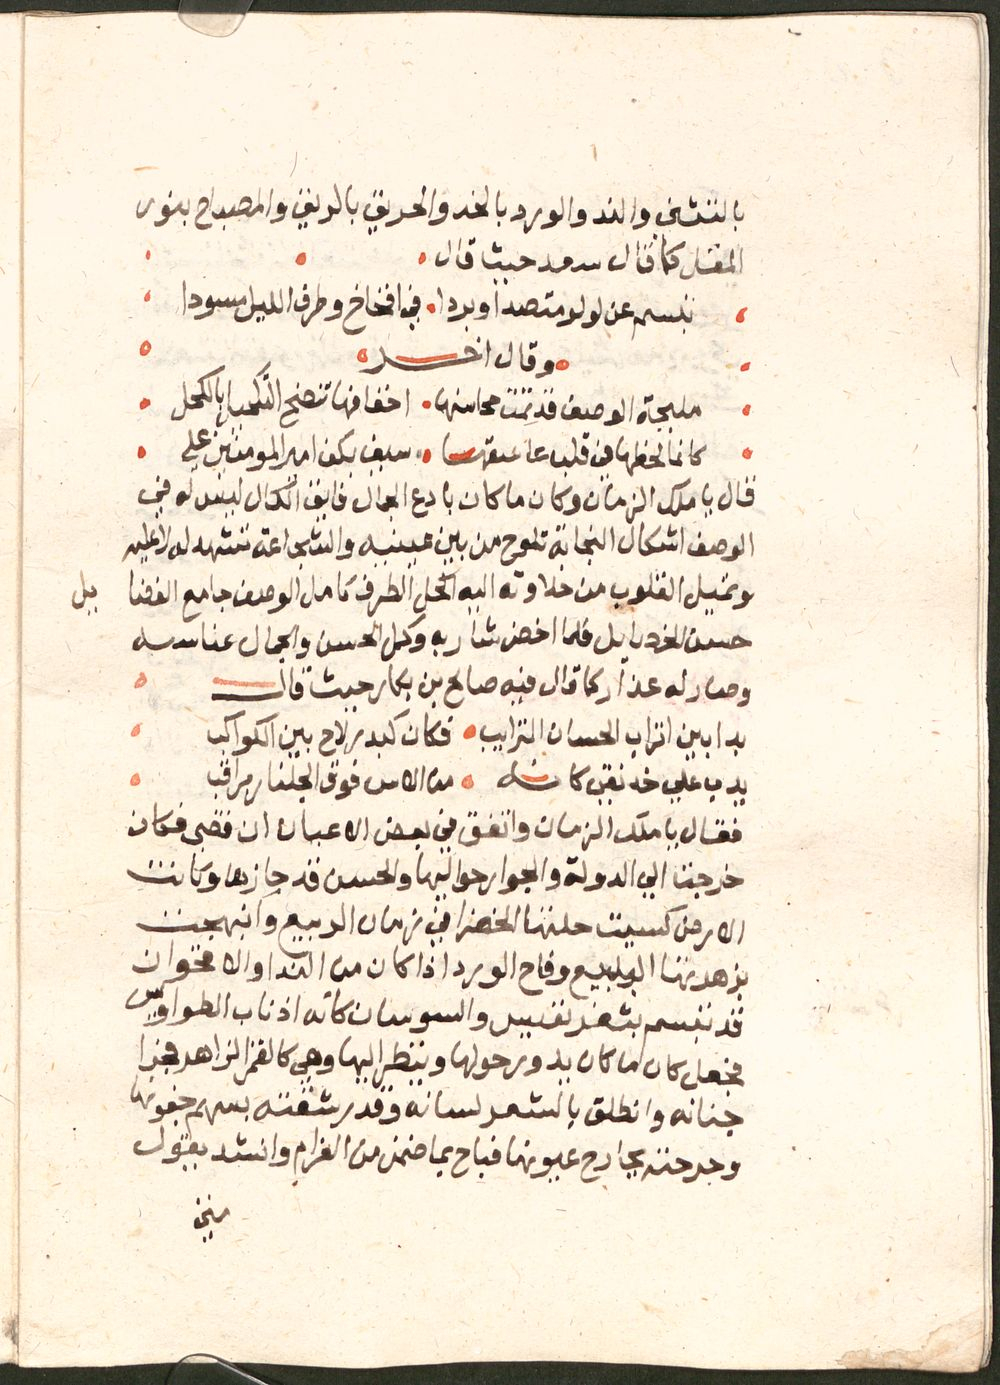 بالتثني والند والورد بالخد والخريق بالريق والمصباح بنور
المقبل كما قال سعد حيث قال
تبسم عن لولو متصدا وبردا في افخاخ وطرف الليل مسودا
وقال اخر
مليحة الوصف قد تمت محاسنها اخفافها تفضح التكحيل بالكحل
كانما لحظها في قلب عاشقها سيف بكف امير المومنين علي
قال يا ملك الزمان وكان ما كان بادع الجمال فايق الكمال ليس له في
الوصف اشكال النجابة تلوح من بين عينيه والشجاعة تشهد له لا عليه
وتميل القلوب من حلاوته اليه اكحل الطرف كامل الوصف جامع الفضا
يل
حسن الخد ايل فلما اخضر شاربه وكمل الحسن والجمال عناسه
وصار له عذار كما قال فيه صالح بن بكار حيث قال
بدا بين اتراب الحسان الترايب فكان كبدر لاح بين الكواكب
يدب علي خد نقي كانه من الاس فوق الجلنار مراقب
فقال يا ملك الزمان واتفق في بعض الاعيان ان قضى فكان
خرجت الي الدولة والجوار حواليها والحسن قد حازها وكانت
الارض كسيت حلتها الخضرا في زمان الربيع وابتهجت
بزهرتها البديع وفاح الورد اذا كان من الندا والاقحوان
قد تبسم بثغر نفيس والسوسان كانه اذناب الطواويس
فجعل كان ما كان يدور حولها وينظر اليها وهي كالقمر الزاهر فجرا
جنانه وانطلق بالشعر لسانه وقد رشقته بسهم جفونها
وجرحته بجارح عيونها فباح بما ضمر من الغرام وانشد يقول